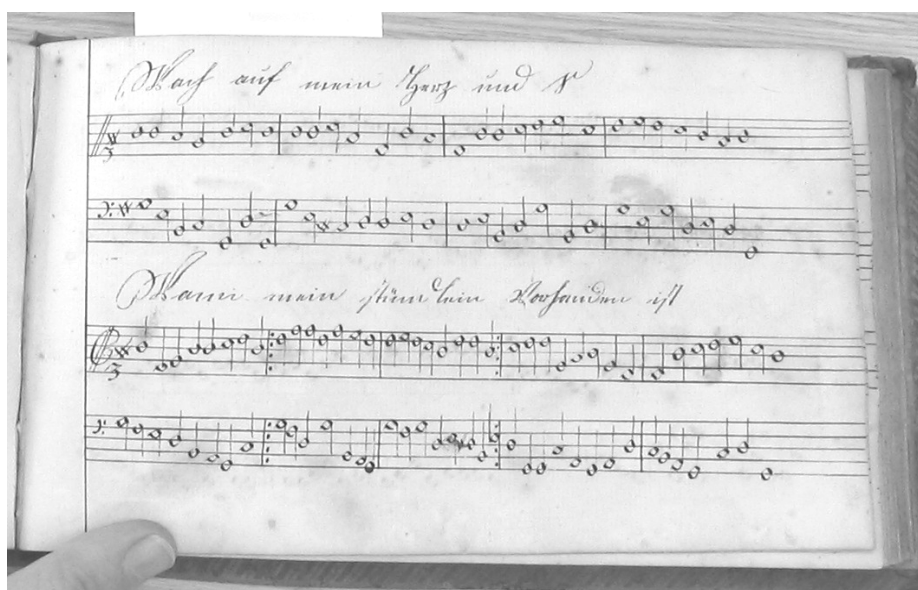 Wach auf mein Herz und S
3
Wann mein stündlein Vorhanden ist
3